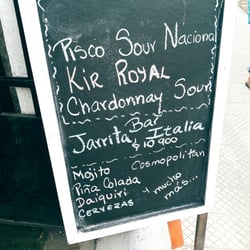 Pisco Sour Nacional
Kir Royal
Chardonnay Sour
Bar
Jarrita Italia
$10.900
Mojito Cosmopolitan
Piña Colada
Daiquiri y mucho
Cervezas más...